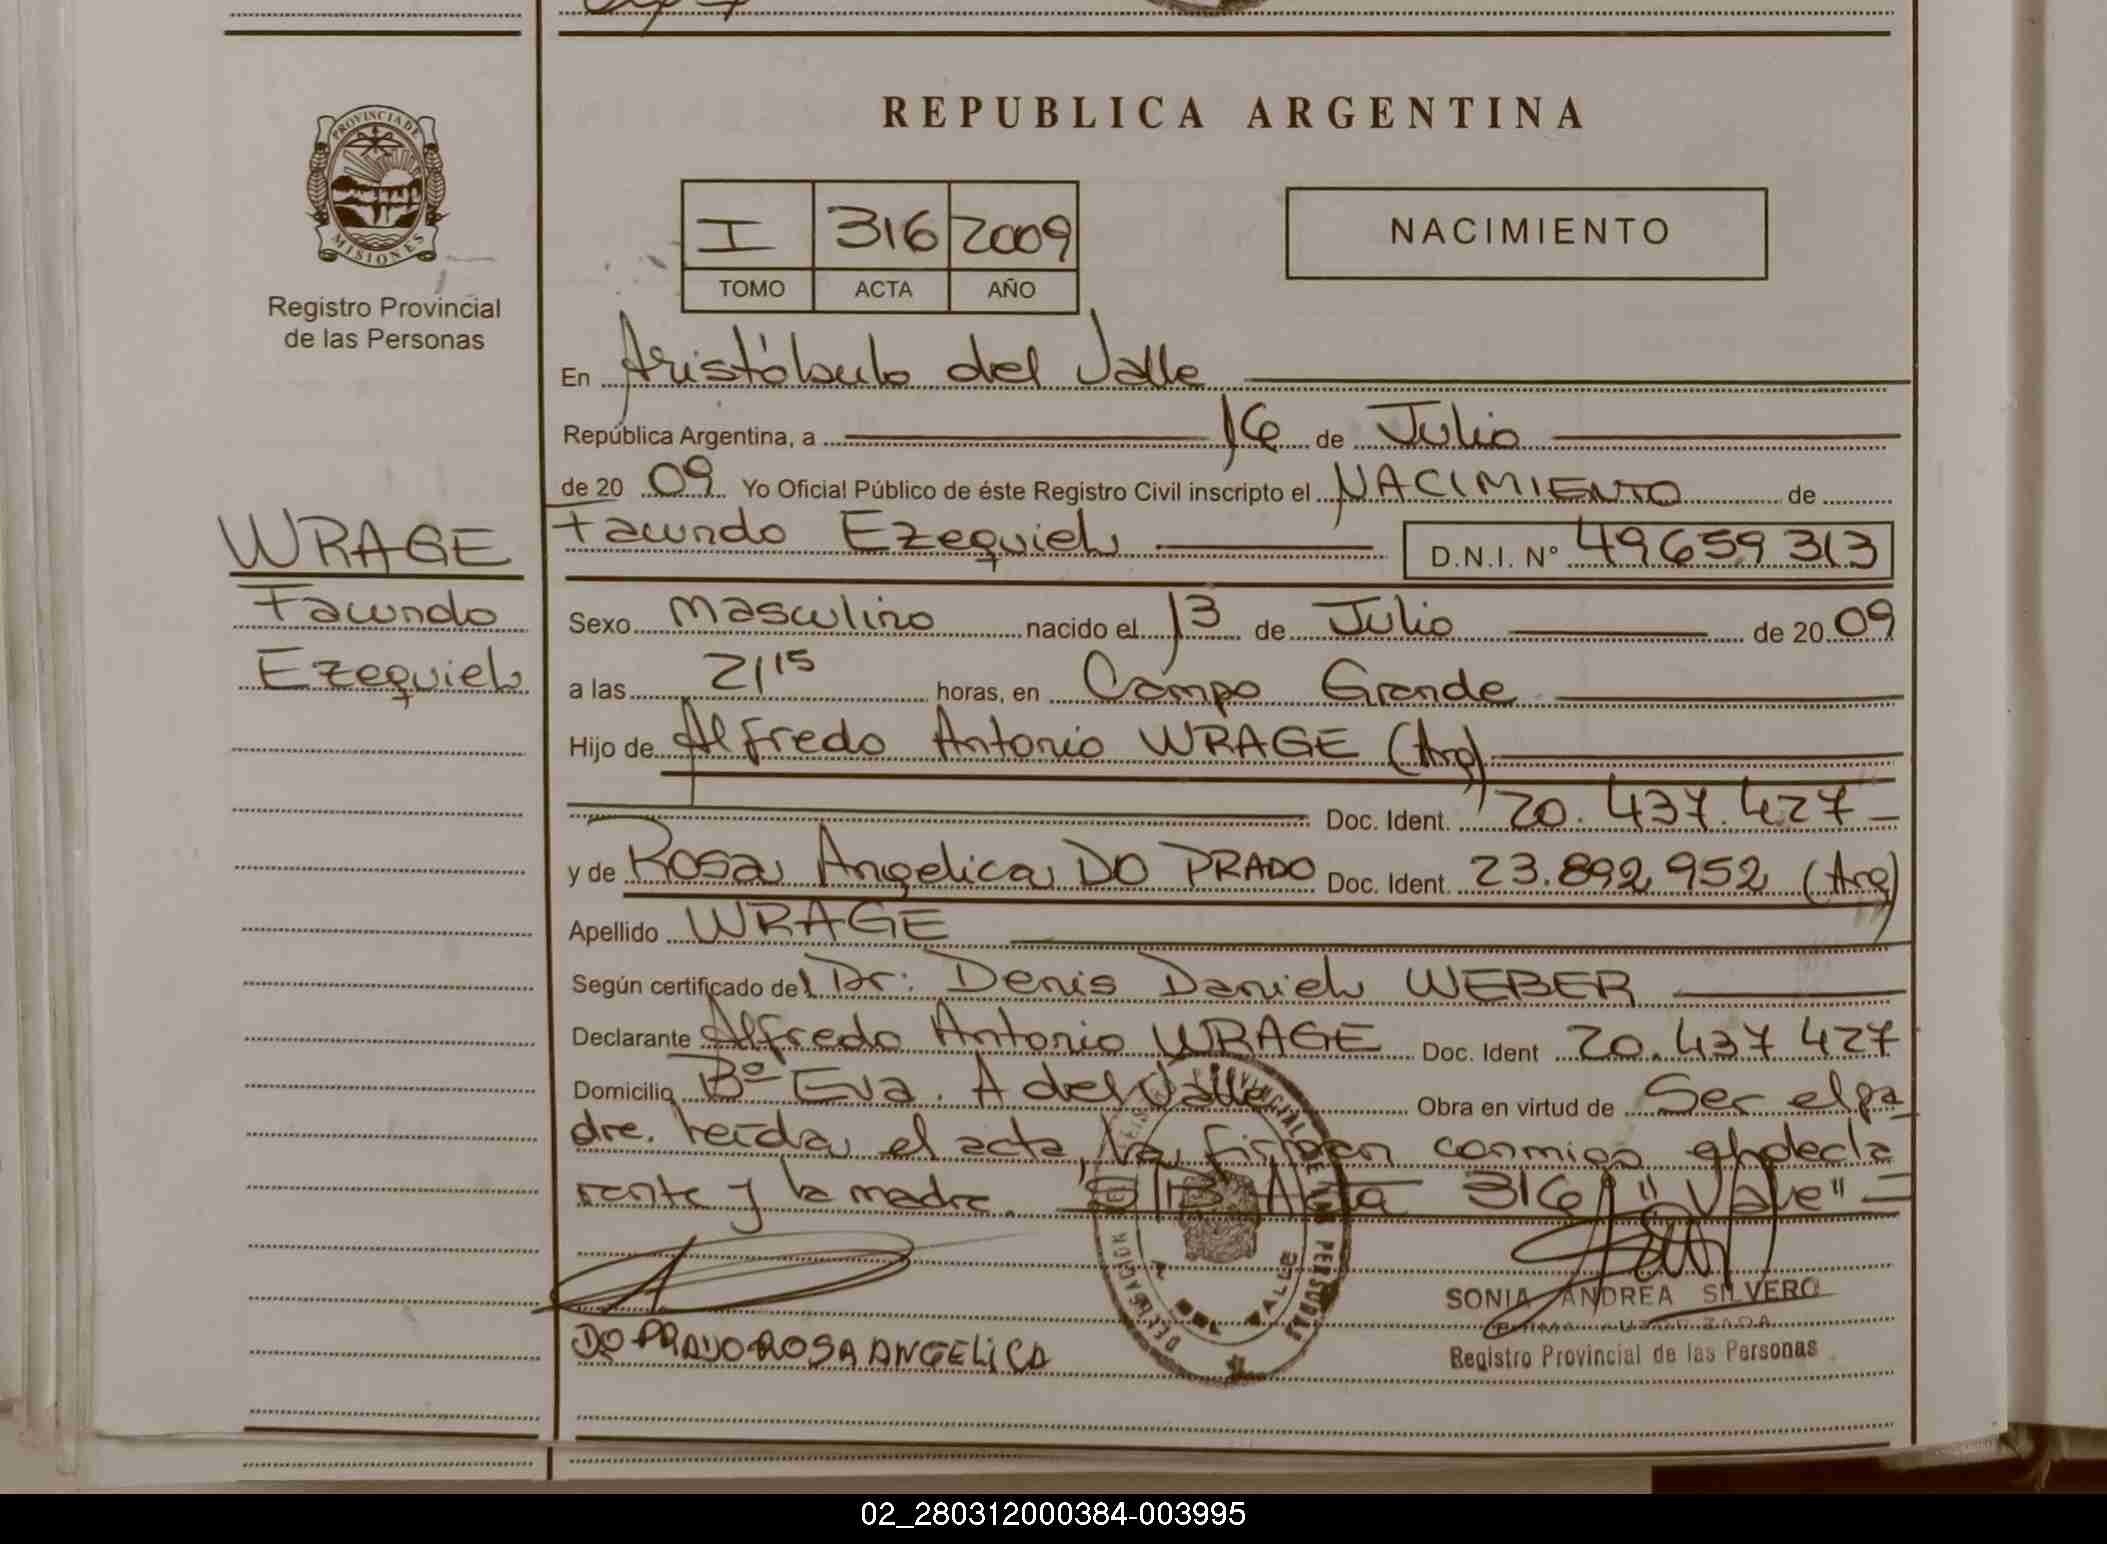 REPUBLICA ARGENTINA
PROVINCIA DE
MISIONES
Registro Provincial
de las Personas
I 316 2009
TOMO ACTA AÑO
NACIMIENTO
En Aristóbulo del Valle
República Argentina, a 16 de Julio
de 20 09 Yo Oficial Público de éste Registro Civil inscripto el NACIMIENTO de
WRAGE
Facundo
Ezequiel
Facundo Ezequiel D.N.I. Nº 49659313
Sexo masculino nacido el 13 de Julio de 20 09
a las 21 15 horas, en Campo Grande
Hijo de Alfredo Antonio WRAGE (Arg)
Doc. Ident. 20.437.427
y de Rosa Angelica DO PRADO Doc. Ident. 23.892.952 (Arg)
Apellido WRAGE
Según certificado del Dr: Denis Daniel WEBER
Declarante Alfredo Antonio WRAGE Doc. Ident 20.437 427
Domicilio Bº Eva. A del Valle Obra en virtud de Ser el pa
dre. Leída el acta, la firman conmigo el decla
rante y la madre. S/R Acta 316 "Vale"
DO PRADO ROSA ANGELICA
DELEGACION
VALLE
SONIA ANDREA SILVERO
FIRMA AUTORIZADA
Registro Provincial de las Personas
02_280312000384-003995